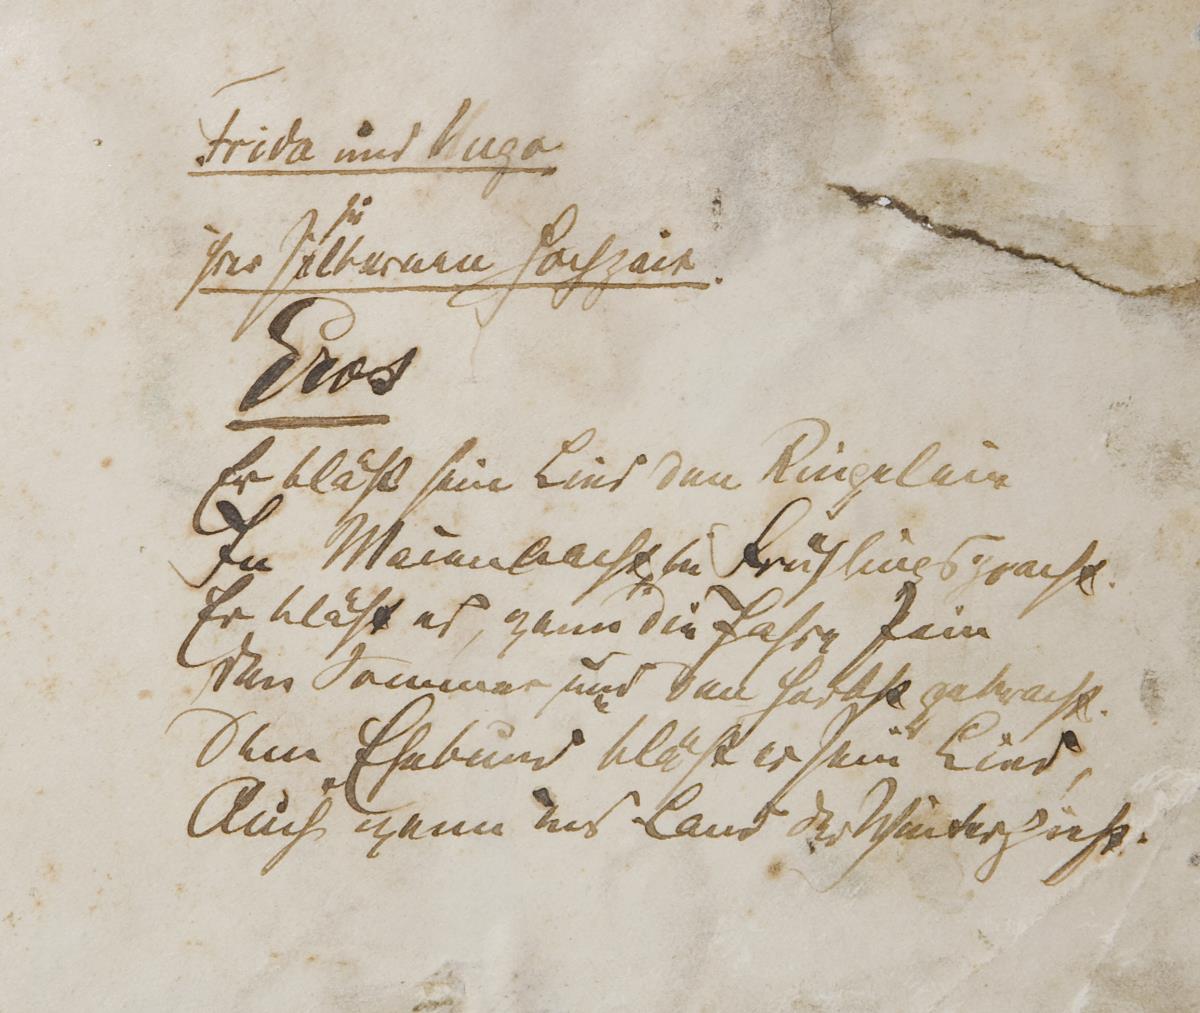 Frida und Hugo
zu
ihrer silbernen Hochzeit.
Eros
Er bläst sein Lied dem Ringelein
In Maiennacht, in Frühlingspracht.
Er bläst es, wenn die Jahre fein
den Sommer und den Herbst gebracht.
Dem Ehebund bläst er sein Lied,
Auch wenn ins Land der Winter zieht.